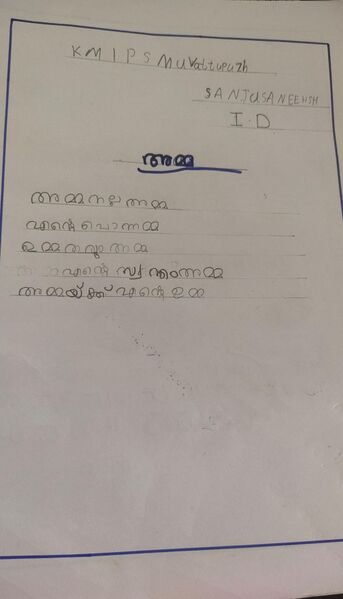 K M I P S Muvattupuzh
SANJUSANEEHSH
I. D
അമ്മ
അമ്മ നല്ല അമ്മ
എന്റെ പൊന്നമ്മ
ഉമ്മ തരും അമ്മ
എന്റെ സ്വന്തം അമ്മ
അമ്മയ്ക്ക് എന്റെ ഉമ്മ